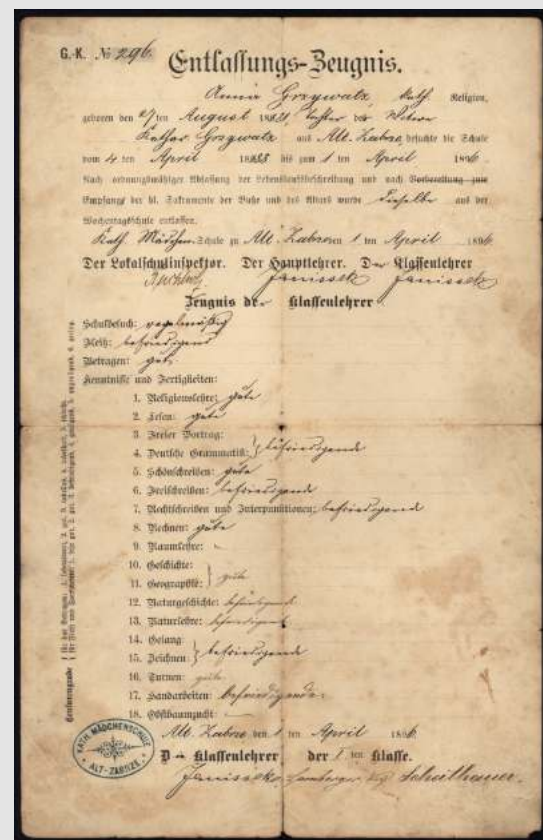 G.-K. № 296.
Entlassungs-Zeugnis.
Anna Grzywatz, kath. Religion,
geboren den 27ten August 1881, Tochter des
Grzywatz aus Alt-Zabrze, besuchte die Schule
vom 4 ten April 1888 bis zum 1 ten April 1896.
Nach ordnungsmäßiger Ablassung der Lebenslaufsbeschreibung und nach Vorbereitung zum
Empfange der hl. Sakramente der Buße und des Altars wurde dieselbe aus der
Wochentagschule entlassen.
Kath. Mädchen-Schule zu Alt-Zabrze den 1 ten April 1896.
Der Lokalschulinspektor. Der Hauptlehrer. Der Klassenlehrer
Janissek Janissek
Zeugnis der Klassenlehrer
Schulbesuch: regelmäßig
Fleiß: befriedigend
Betragen: gut.
Kenntnisse und Fertigkeiten:
1. Religionslehre: gute
2. Lesen: gute
3. Freier Vortrag:
4. Deutsche Grammatik: } befriedigende
5. Schönschreiben: gute
6. Freischreiben: befriedigende
7. Rechtschreiben und Interpunktionen: befriedigend
8. Rechnen: gute
9. Raumlehre: -
10. Geschichte:
11. Geographie: } gute
12. Naturgeschichte: befriedigend
13. Naturlehre: befriedigend
14. Gesang:
15. Zeichnen: } befriedigende
16. Turnen: gute
17. Handarbeiten: befriedigende
18. Obstbaumzucht: —
Alt-Zabrze den 1 ten April 1896.
Die Klassenlehrer der I ten Klasse.
Janissek Scheithauer.
KATH. MÄDCHENSCHULE
ALT-ZABRZE